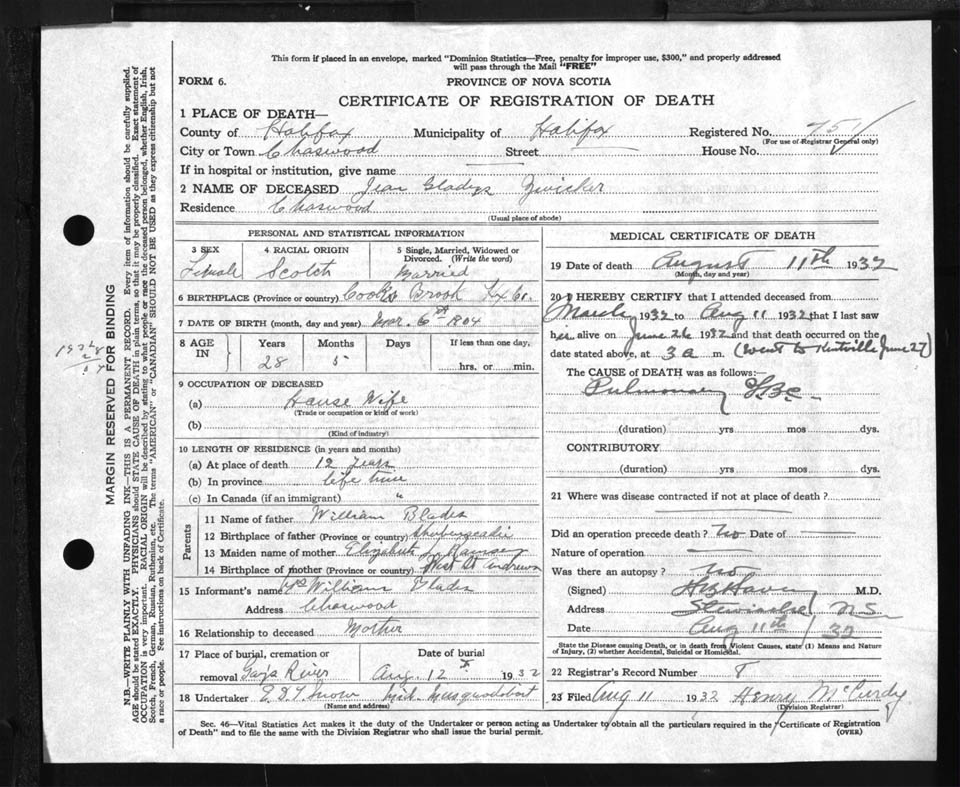 This form if placed in an envelope, marked "Dominion Statistics—Free, penalty for improper use, $300," and properly addressed
will pass through the Mail "FREE"
FORM 6.
PROVINCE OF NOVA SCOTIA
CERTIFICATE OF REGISTRATION OF DEATH
1 PLACE OF DEATH—
County of Halifax Municipality of Halifax Registered No. 751
(For use of Registrar General only)
City or Town Chaswood Street — House No.
If in hospital or institution, give name —
2 NAME OF DECEASED Jean Gladys Zwicker
Residence Chaswood
(Usual place of abode)
PERSONAL AND STATISTICAL INFORMATION
3 SEX 4 RACIAL ORIGIN 5 Single, Married, Widowed or
Divorced. (Write the word)
Female Scotch Married
6 BIRTHPLACE (Province or country) Cooks Brook Hx Co.
7 DATE OF BIRTH (month, day and year) Mar. 6th 1904
8 AGE IN Years Months Days If less than one day,
28 5 hrs. or min.
9 OCCUPATION OF DECEASED
(a) House Wife
(Trade or occupation or kind of work)
(b)
(Kind of industry)
10 LENGTH OF RESIDENCE (in years and months)
(a) At place of death 12 Years
(b) In province life time
(c) In Canada (if an immigrant) "
Parents
11 Name of father William Blades
12 Birthplace of father (Province or country) Shubenacadie
13 Maiden name of mother Elizabeth J. Ramsey
14 Birthplace of mother (Province or country) West St Andrews
15 Informant's name Mrs William Blades
Address Chaswood
16 Relationship to deceased Mother
17 Place of burial, cremation or Date of burial
removal Gays River Aug. 12 1932
18 Undertaker Mid. Musquodoboit
(Name and address)
MEDICAL CERTIFICATE OF DEATH
19 Date of death August 11th 1932
(Month, day and year)
20 I HEREBY CERTIFY that I attended deceased from
March 1932 to Aug 11 1932 that I last saw
her alive on June 26 1932 and that death occurred on the
date stated above, at 3 a m. (Went to Kentville June 27)
The CAUSE of DEATH was as follows:—
Pulmonary T.B.C.
(duration) yrs mos dys.
CONTRIBUTORY
(duration) yrs mos dys.
21 Where was disease contracted if not at place of death?
Did an operation precede death? No Date of —
Nature of operation —
Was there an autopsy? No
(Signed) M.D.
Address Stewiacke N S
Date Aug 11th / 32
State the Disease causing Death, or in death from Violent Causes, state (1) Means and Nature
of Injury, (2) whether Accidental, Suicidal or Homicidal.
22 Registrar's Record Number 8
23 Filed Aug 11 1932 Henry McCurdy
(Division Registrar)
Sec. 46—Vital Statistics Act makes it the duty of the Undertaker or person acting as Undertaker to obtain all the particulars required in the "Certificate of Registration
of Death" and to file the same with the Division Registrar who shall issue the burial permit. (OVER)
MARGIN RESERVED FOR BINDING
N.B.—WRITE PLAINLY WITH UNFADING INK—THIS IS A PERMANENT RECORD. Every item of information should be carefully supplied.
AGE should be stated EXACTLY. PHYSICIANS should STATE CAUSE OF DEATH in plain terms, so that it may be properly classified. Exact statement of
OCCUPATION is very important. RACIAL ORIGIN will be described by stating to what people or race the deceased person belonged, whether English, Irish,
Scotch, French, German, Russian, Ruthenian, etc. The terms "AMERICAN" or "CANADIAN" SHOULD NOT BE USED as they express citizenship but not
a race or people. See instructions on back of Certificate.
1932
28